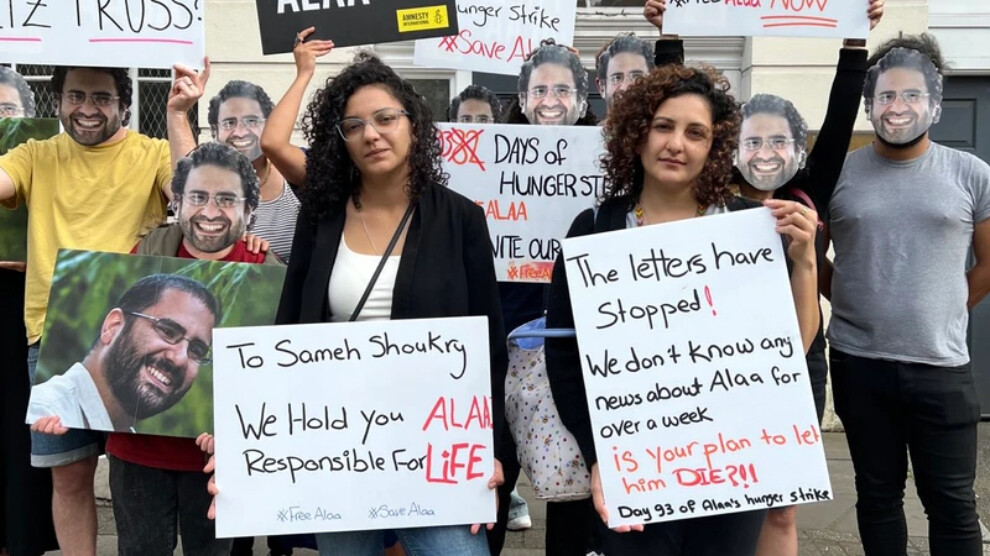 TRUSS?
ALAA
AMNESTY
INTERNATIONAL
Hunger Strike
#Save
NOW
DAYS of
HUNGER
ALAA
OUR
To Sameh Shoukry
We Hold you ALAA
Responsible For LiFE
#FreeAlaa #SaveAlaa
The letters have
Stopped!
We don't know any
news about Alaa for
over a week
is your plan to let
him DIE?!!
Day 93 of Alaa's hunger strike